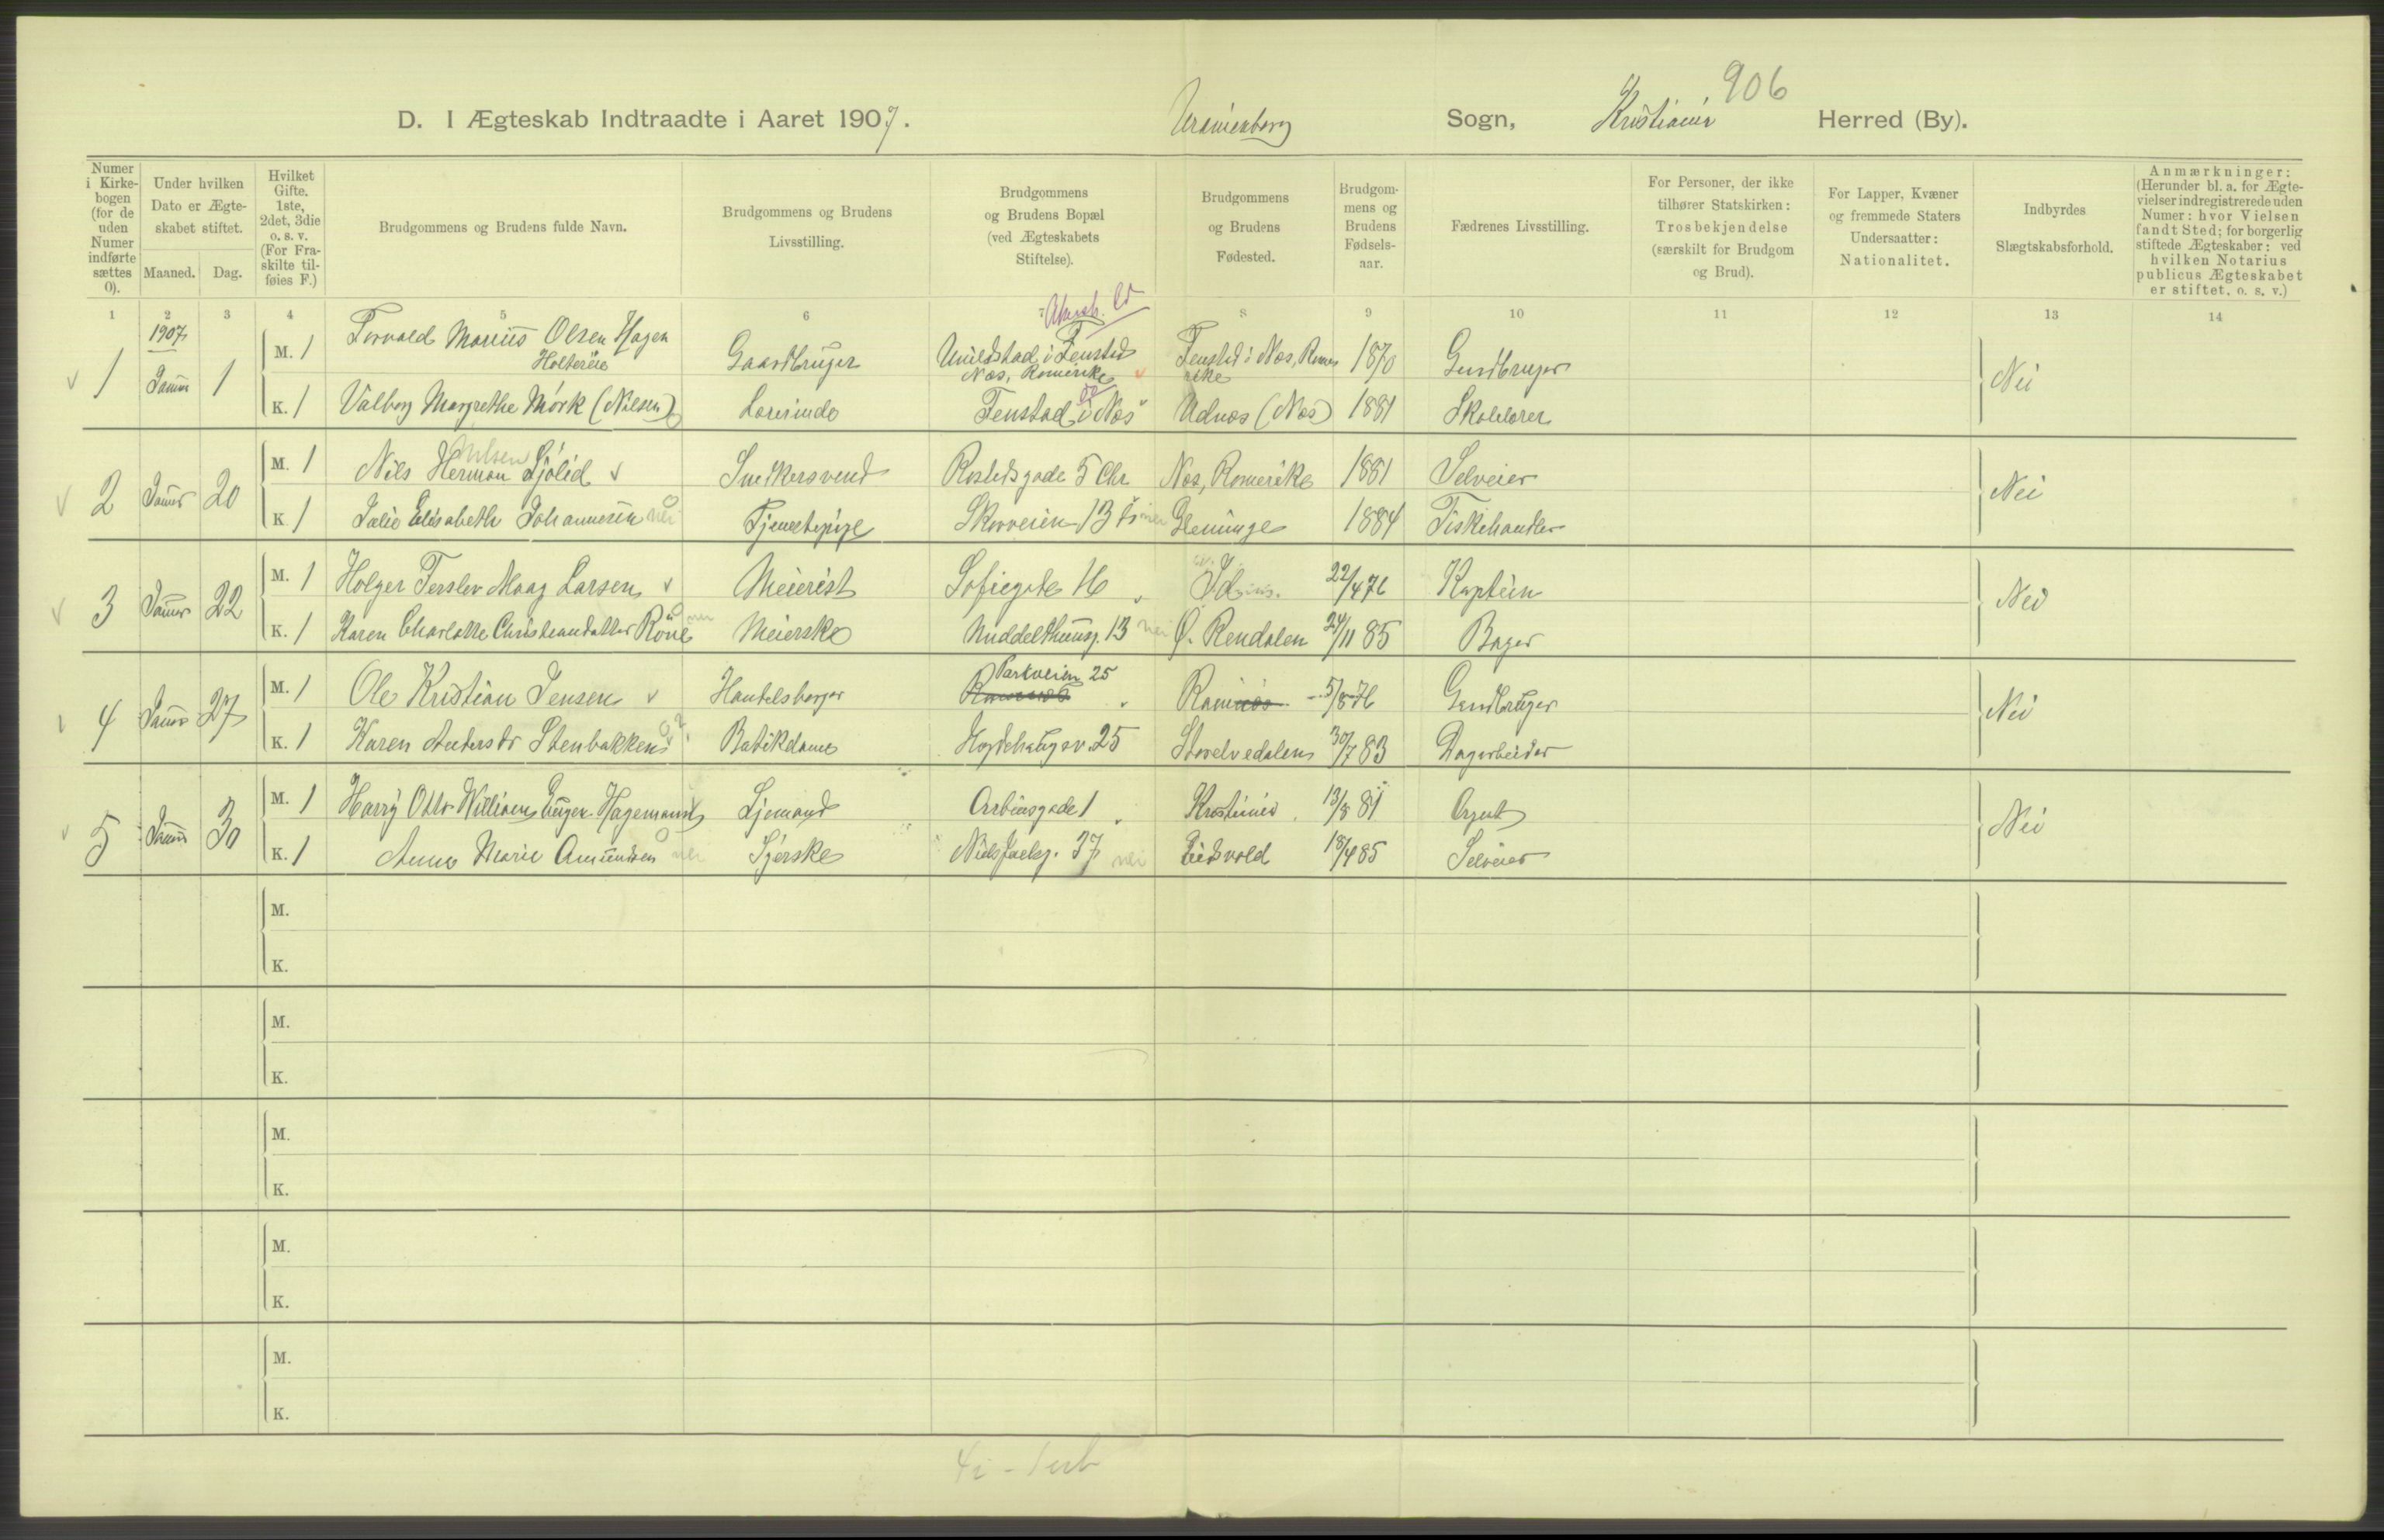 906
D. I Ægteskab Indtraadte i Aaret 1907. Uranienborg Sogn, Kristiania Herred (By).
Numer i Kirke-bogen (for de uden Numer indførte sættes 0).
Under hvilken Dato er Ægte-skabet stiftet.
Maaned. Dag.
Hvilket Gifte. 1ste, 2det, 3die o. s. v. (For Fra-skilte til-føies F.)
Brudgommens og Brudens fulde Navn.
Brudgommens og Brudens Livsstilling.
Brudgommens og Brudens Bopæl (ved Ægteskabets Stiftelse).
Brudgommens og Brudens Fødested.
Brudgom-mens og Brudens Fødsels-aar.
Fædrenes Livsstilling.
For Personer, der ikke tilhører Statskirken: Trosbekjendelse (særskilt for Brudgom og Brud).
For Lapper, Kvæner og fremmede Staters Undersaatter: Nationalitet.
Indbyrdes Slægtskabsforhold.
Anmærkninger: (Herunder bl. a. for Ægte-vielser indregistrerede uden Numer: hvor Vielsen fandt Sted; for borgerlig stiftede Ægteskaber: ved hvilken Notarius publicus Ægteskabet er stiftet. o. s. v.)
1 2 3 4 5 6 7 8 9 10 11 12 13 14
1907
1 Januar 1 M. 1 Torvald Marius Olsen Hagen Holtereie Gaardbruger i Fenstad Næs, Romerike Fenstad i Næs, Romerike 1870 Gaardbruger Nei
K. 1 Valborg Margrethe Mørk (Nilsen) Lærerinde Fenstad i Næs Udnæs (Næs) 1881 Skolelærer
2 Januar 20 M. 1 Nils Herman Nilsen Sjølid Snedkersvend Rostedsgade 5 Chr Næs, Romerike 1881 Selveier Nei
K. 1 Julie Elisabeth Johannesen nei Tjenestepige Skovveien 13 nei Glemminge 1884 Fiskehandler
3 Januar 22 M. 1 Holger Terslev Maag Larsen Meierist Sofiegate 16 22/4 76 Kaptein Nei
K. 1 Karen Charlotte Christiansdatter nei Meierske Middelthunsg. 13 nei Ø. Rendalen 24/11 85 Bager
4 Januar 27 M. 1 Ole Kristian Jensen Handelsborger Parkveien 25 Ramnæs 5/8 76 Gaardbruger Nei
K. 1 Karen Andersdr Stenbakken Butikdame Hegdehaugsv. 25 Storelvedalen 30/7 83 Dagarbeider
5 Januar 30 M. 1 Harry Otto William Eugen Hagemann Sjømand Arbinsgade 1 Kristiania 13/8 81 Agent Nei
K. 1 Anna Marie Amundsen nei Syerske Niels Juelsg. 37 nei Eidsvold 18/4 85 Selveier
M.
K.
M.
K.
M.
K.
M.
K.
M.
K.